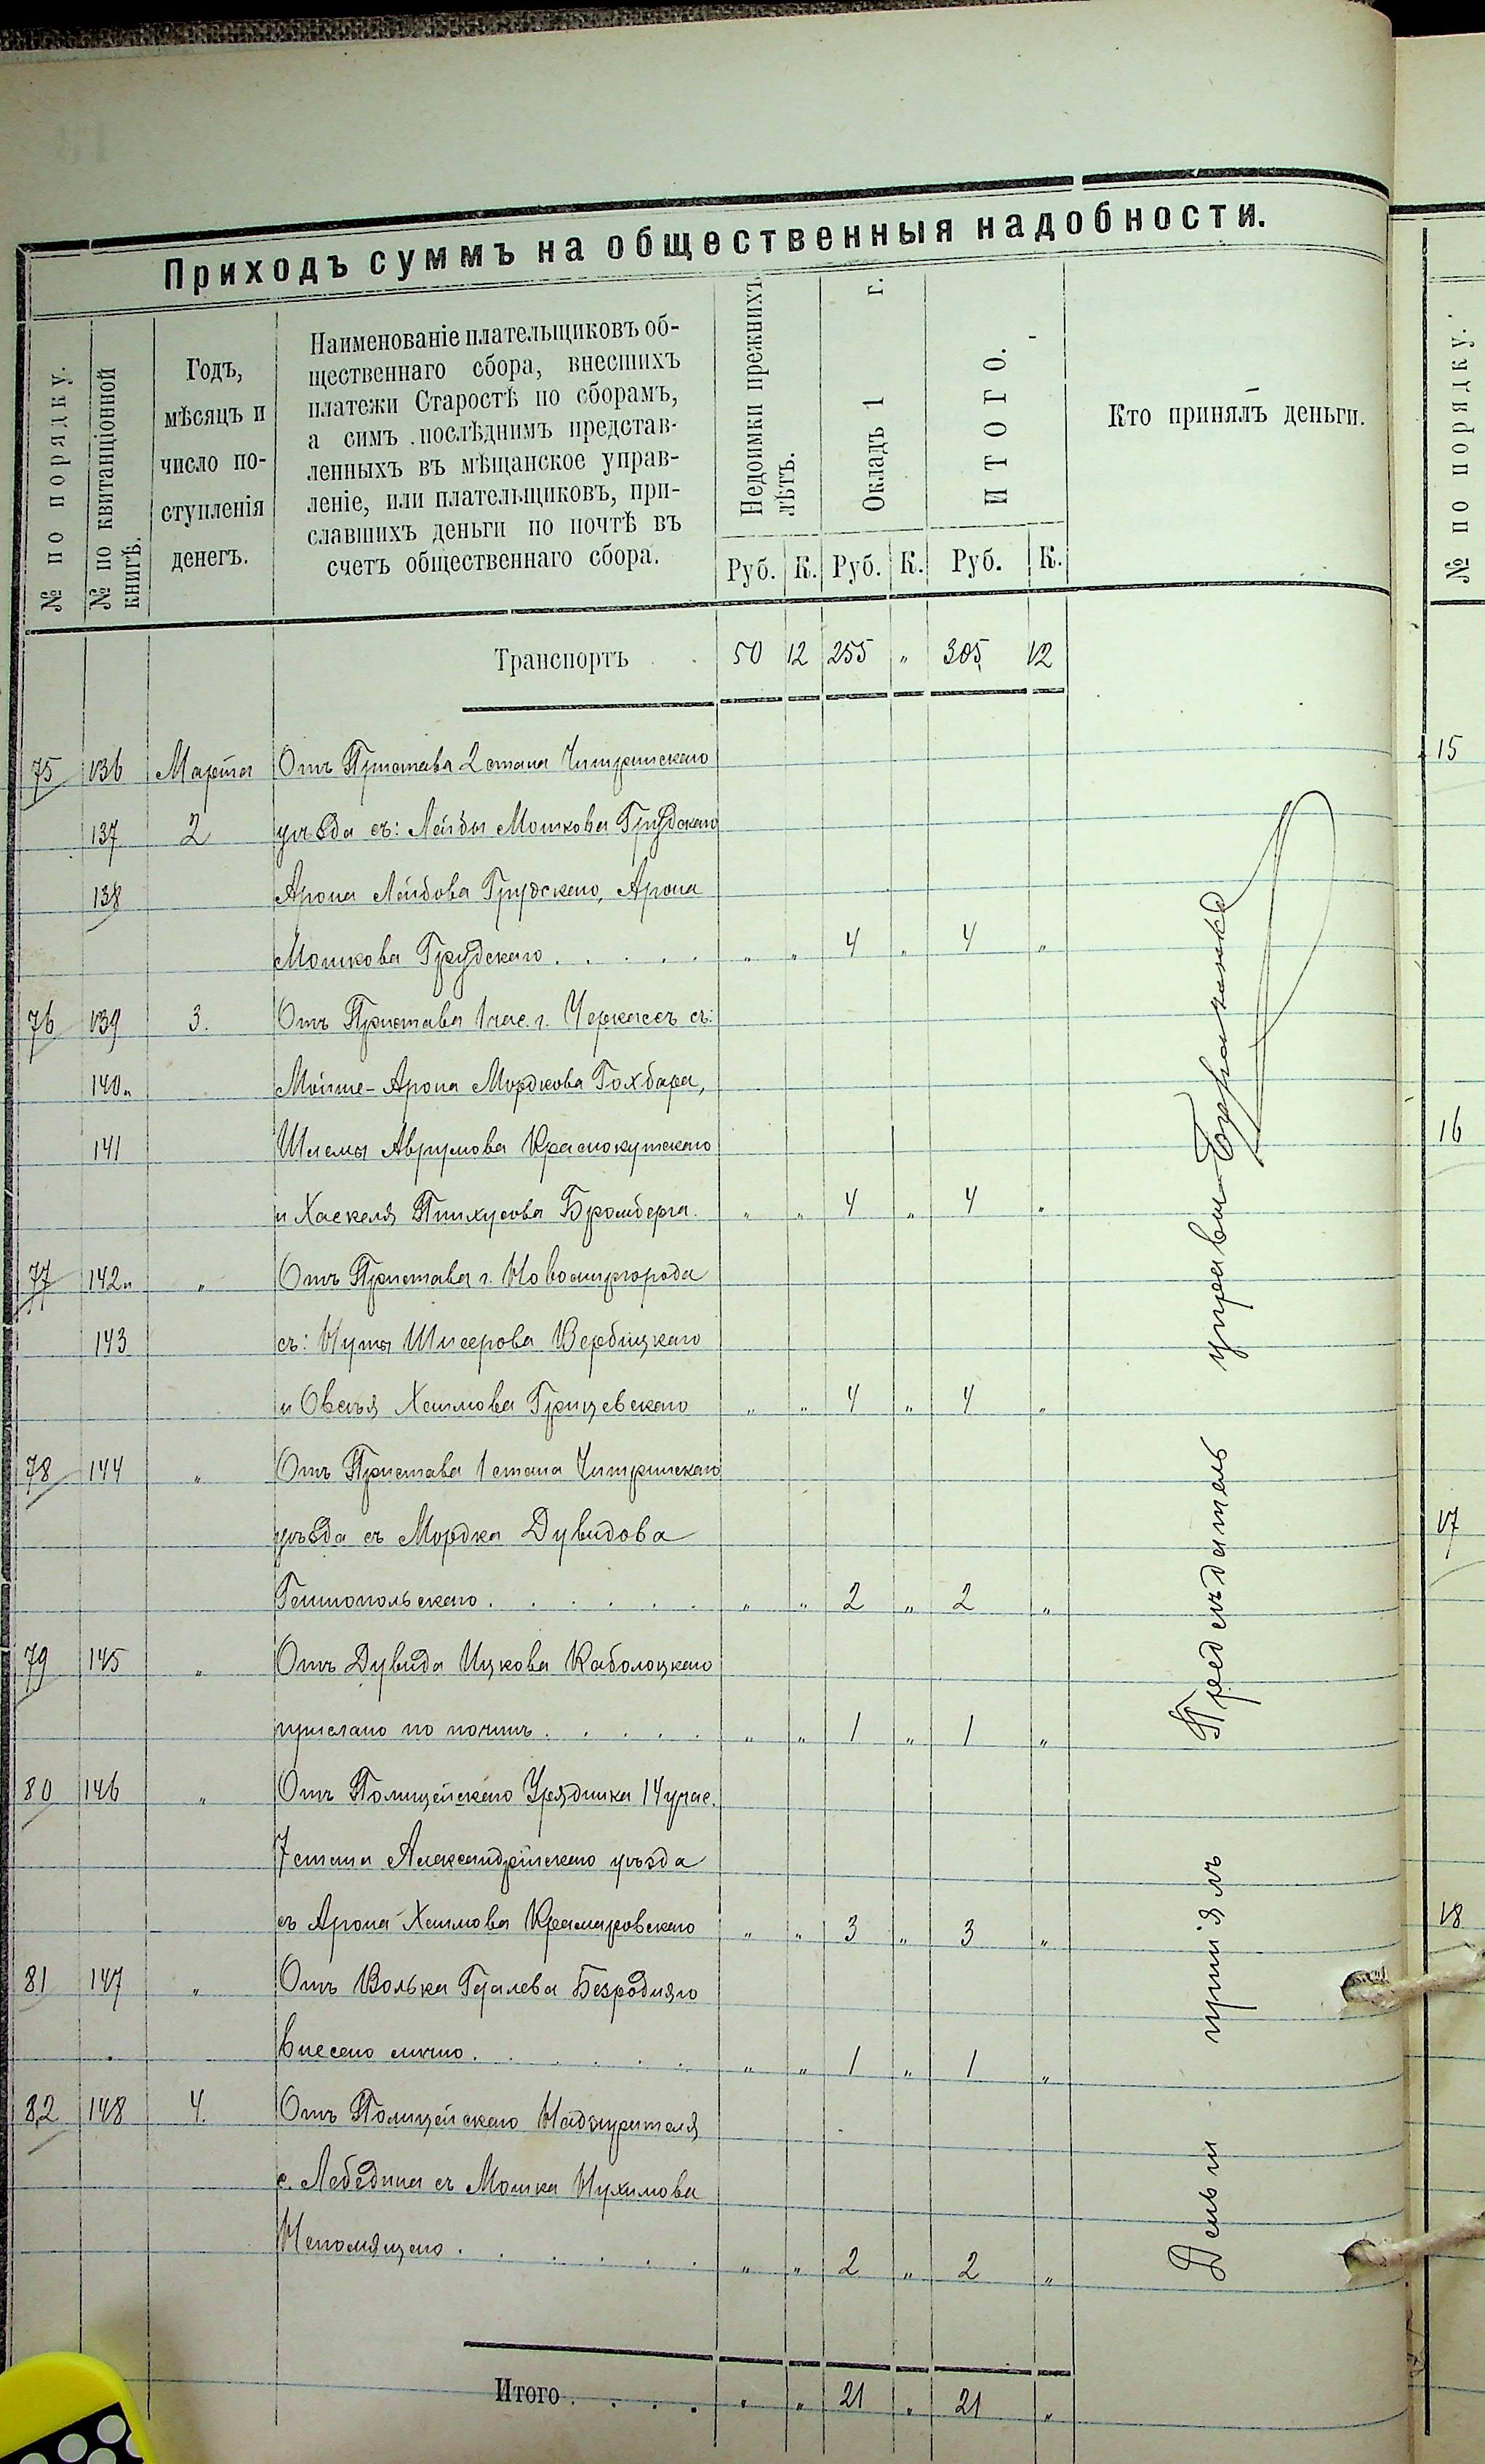 Приходъ суммъ на общественныя надобности.
№ по порядку.
№ по квитанціонной книгѣ.
Годъ,
мѣсяцъ и
число по-
ступленія
денегъ.
Наименованіе плательщиковъ об-
щественнаго сбора, внесшихъ
платежи Старостѣ по сборамъ,
а симъ послѣднимъ представ-
ленныхъ въ мѣщанское управ-
леніе, или плательщиковъ, при-
славшихъ деньги по почтѣ въ
счетъ общественнаго сбора.
Недоимки прежнихъ лѣтъ.
Окладъ 1 г.
ИТОГО.
Кто принялъ деньги.
Руб. К. Руб. К. Руб. К.
Транспортъ 50 12 255 „ 305 12
75 136 Марта Отъ Пристава 2 стана Чигиринскаго
137 2 уѣзда съ: Лейбы Мошкова Грудскаго
138 Арона Лейбова Грудскаго, Арона
Мошкова Грудскаго . . . . . „ „ 4 „ 4 „
76 139 3. Отъ Пристава 1 час. г. Черкассъ съ:
140 Мойше-Арона Мордкова Гохбара,
141 Шлемы Аврумова Краснокутскаго
и Хаскеля Пинхусова Бромберга. „ „ 4 „ 4 „
77 142 „ Отъ Пристава г. Новомиргорода
143 съ: Нуты Шлеерова Вербицкаго
и Овсѣя Хаимова Грицевскаго „ „ 4 „ 4 „
78 144 „ Отъ Пристава 1 стана Чигиринскаго
уѣзда съ Мордка Дувидова
. . . . . . „ „ 2 „ 2 „
79 145 „ Отъ Дувида Ицкова Каболоцкаго
прислано по почтѣ . . . . . „ „ 1 „ 1 „
80 146 „ Отъ Полицейскаго Урядника 14 учас.
7 стана Александрійскаго уѣзда
съ Арона Хаимова Крамаровскаго „ „ 3 „ 3 „
81 147 „ Отъ Волька Безроднаго
внесено лично . . . . . . „ „ 1 „ 1 „
82 148 4. Отъ Полицейскаго Надзирателя
с. Лебедина съ Мошка Нухимова
Непомящаго . . . . . . „ „ 2 „ 2 „
Итого . . . . „ „ 21 „ 21 „
Деньги принялъ Предсѣдатель управы
№ по порядку.
15
16
17
18